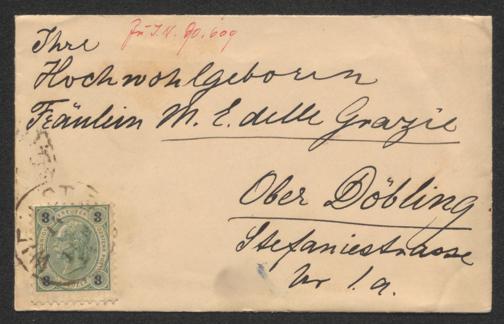 Zu I.N. 90.609
Ihre
Hochwohlgeboren
Fräulein M. E. delle Grazie
Ober Döbling
Stefaniestrasse
Nr 1.a.
3 3
3 3